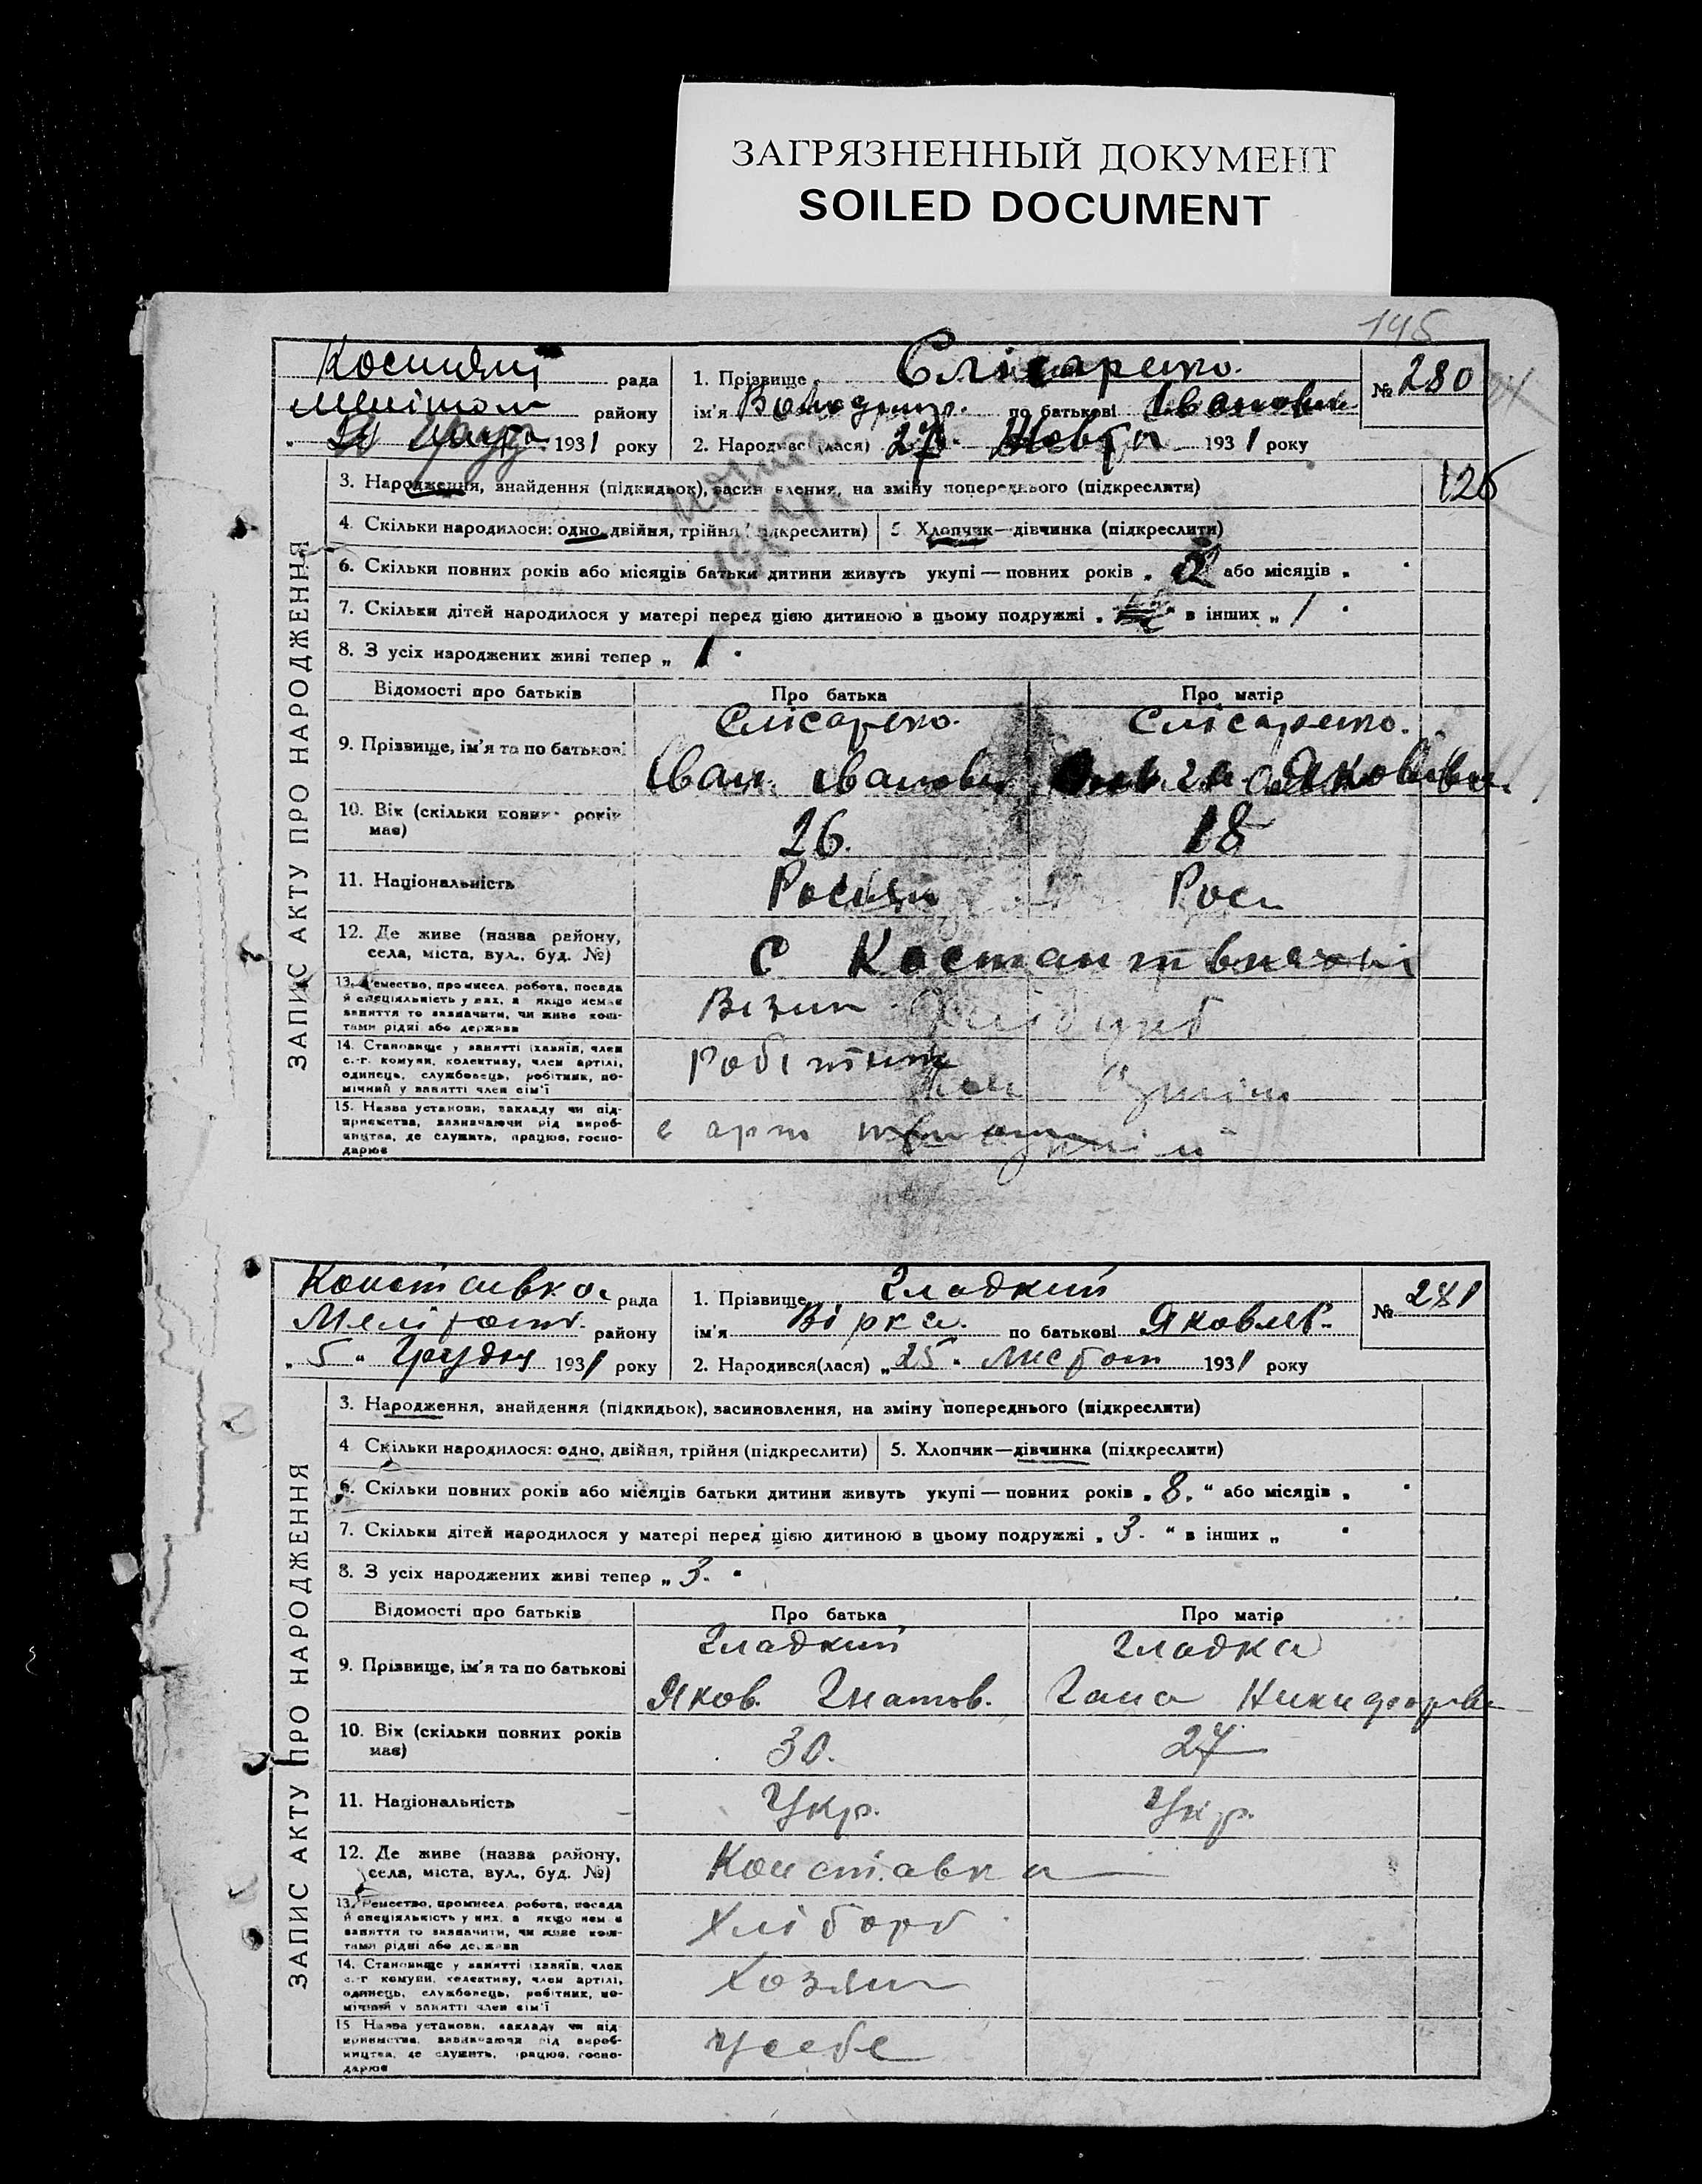 ЗАГРЯЗНЕННЫЙ ДОКУМЕНТ
SOILED DOCUMENT
195
рада
району
1931 року
1. Прізвище Єлісаренко.
ім'я Володимир. по батькові Іванович
2. Народився(лася) 27. Жовтн 1931 року
№ 280
126
ЗАПИС АКТУ ПРО НАРОДЖЕННЯ
3. Народження, знайдення (підкидьок), засиновлення, на зміну попереднього (підкреслити)
4. Скільки народилося: одно, двійня, трійня (підкреслити)
5. Хлопчик—дівчинка (підкреслити)
6. Скільки повних років або місяців батьки дитини живуть укупі — повних років „ 2 або місяців „ "
7. Скільки дітей народилося у матері перед цією дитиною в цьому подружжі „ " в інших „ 1 "
8. З усіх народжених живі тепер „ 1 "
Відомості про батьків
Про батька
Про матір
9. Прізвище, ім'я та по батькові
Єлісаренко.
Іван Іванович
Єлісаренко.
Ольга Яковлівна.
10. Вік (скільки повних років має)
26.
18
11. Національність
Росіян
Роси
12. Де живе (назва району, села, міста, вул., буд. №)
С
13. Ремество, промисел, робота, посада й спеціяльність у них, а якщо немає заняття то зазначити, чи живе коштами рідні або держави
Візник
14. Становище у занятті (хазяїн, член с.-г. комуни, колективу, член артілі, одинець, службовець, робітник, помічний у занятті член сім'ї
Робітник
15. Назва установи, закладу чи підприємства, зазначаючи рід виробництва, де служить, працює, господарює
в арт
Констанвка рада
Меліт району
„ 5 " Грудня 1931 року
1. Прізвище Гладкий
ім'я Вірка. по батькові Яковлів.
2. Народився(лася) „ 25. Листоп 1931 року
№ 281
ЗАПИС АКТУ ПРО НАРОДЖЕННЯ
3. Народження, знайдення (підкидьок), засиновлення, на зміну попереднього (підкреслити)
4 Скільки народилося: одно, двійня, трійня (підкреслити)
5. Хлопчик—дівчинка (підкреслити)
6. Скільки повних років або місяців батьки дитини живуть укупі — повних років „ 8. " або місяців „ "
7. Скільки дітей народилося у матері перед цією дитиною в цьому подружжі „ 3. " в інших „ "
8. З усіх народжених живі тепер „ 3. "
Відомості про батьків
Про батька
Про матір
9. Прізвище, ім'я та по батькові
Гладкий
Яков. Гнатов.
Гладка
Гана Никифорівн
10. Вік (скільки повних років має)
30.
27
11. Національність
Укр.
Укр.
12. Де живе (назва району, села, міста, вул., буд. №)
Констанвка
13. Ремество, промисел, робота, посада й спеціяльність у них, а якщо немає заняття то зазначити, чи живе коштами рідні або держави
Хлібороб
14. Становище у занятті (хазяїн, член с.-г. комуни, колективу, член артілі, одинець, службовець, робітник, помічний у занятті член сім'ї
Хозяин
15. Назва установи, закладу чи підприємства, зазначаючи рід виробництва, де служить, працює, господарює
Усебе